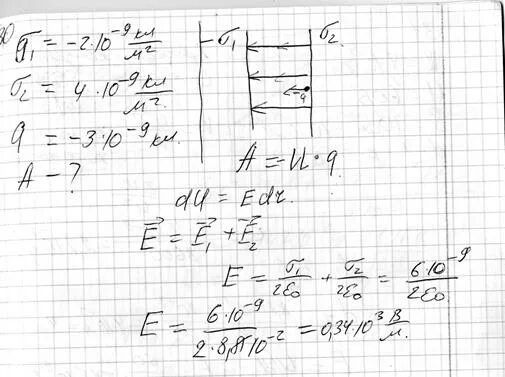 σ₁ = -2·10⁻⁹ кл/м²
σ₂ = 4·10⁻⁹ кл/м²
q = -3·10⁻⁹ кл.
A - ?
-σ₁ σ₂
-q
A = U·q
dU = Edr.
E⃗ = E⃗₁ + E⃗₂
E = σ₁/2ε₀ + σ₂/2ε₀ = 6·10⁻⁹/2ε₀
E = 6·10⁻⁹/2·8,85·10⁻¹² = 0,34·10³ В/м.